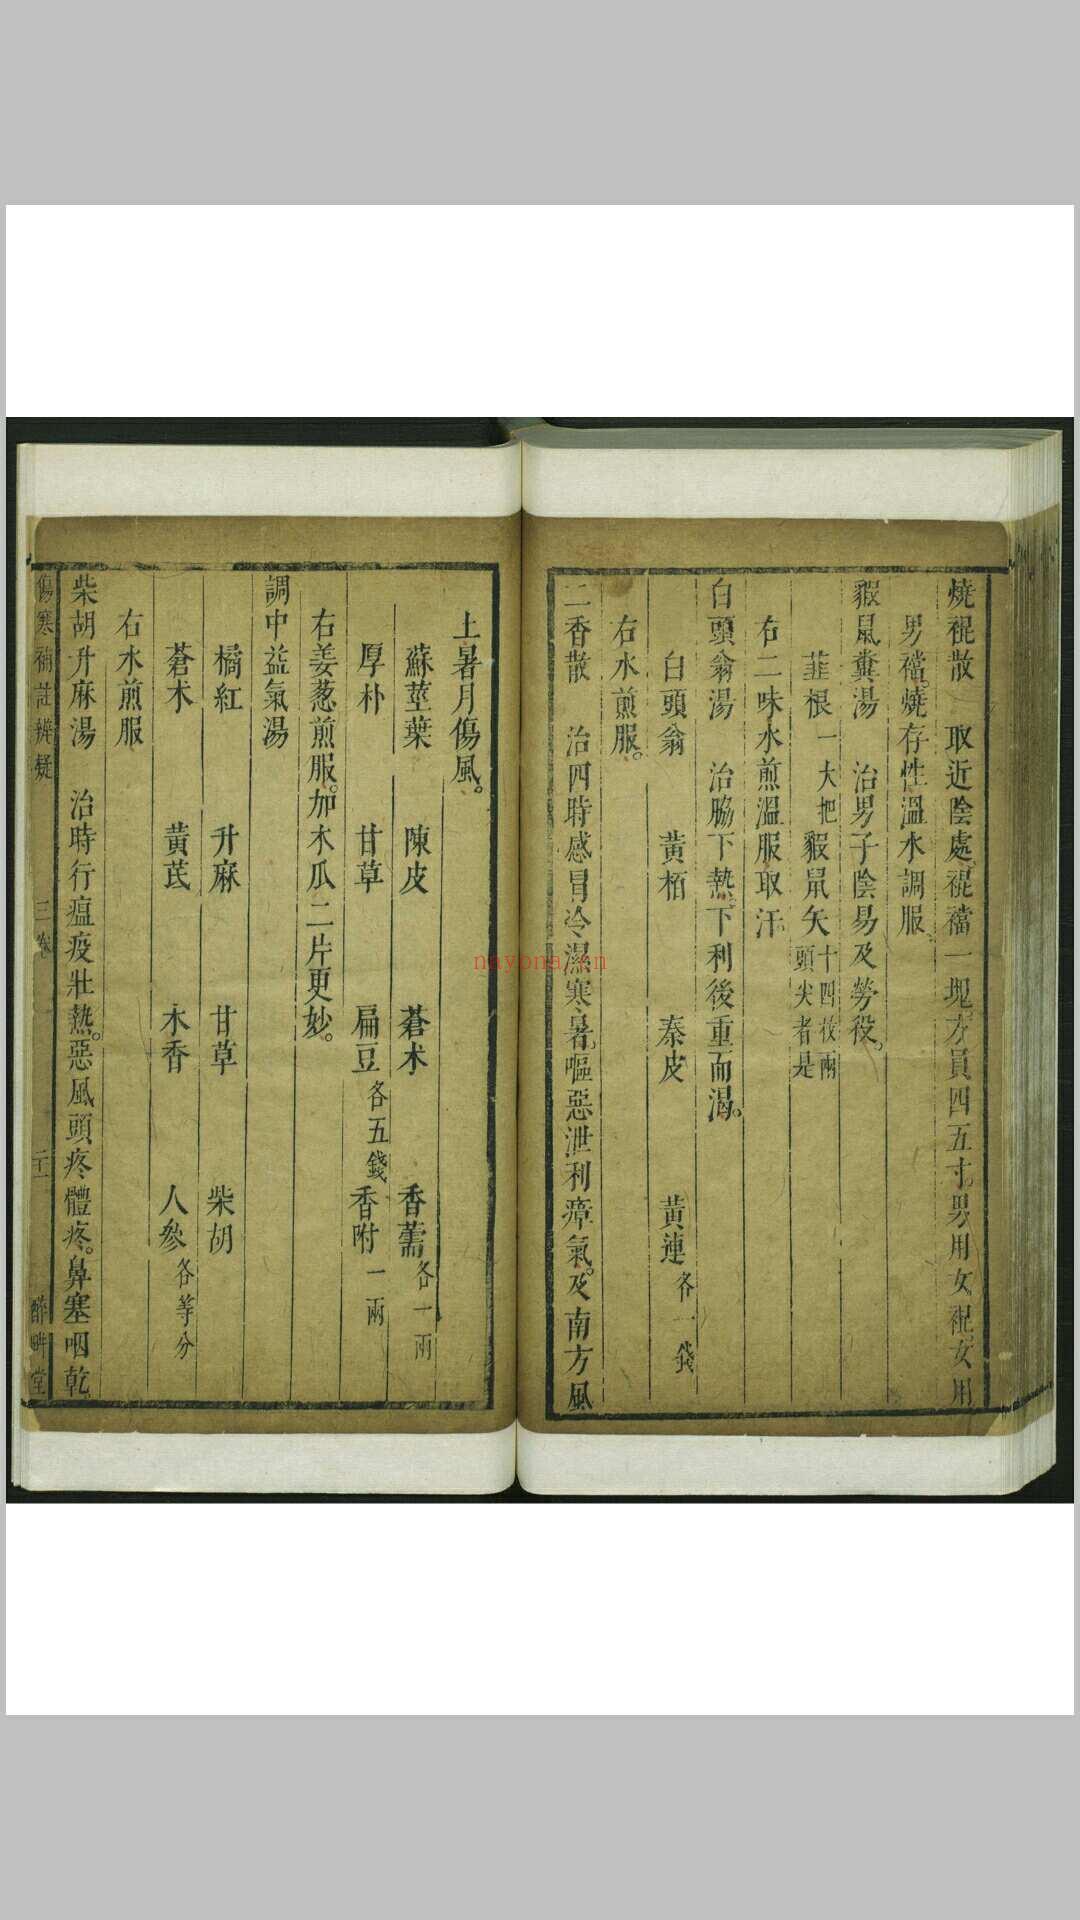 燒裩散　取近陰處裩襠一塊方員四五寸男用女裩女用
男襠燒存性溫水調服
豭鼠糞湯　治男子陰易及勞役。
韮根一大把　豭鼠矢十四枚兩頭尖者是
右二味水煎溫服取汗。
白頭翁湯　治脇下熱下利後重而渴。
白頭翁　黃栢　秦皮　黃連各一錢
右水煎服。
二香散　治四時感冒冷濕寒暑。嘔惡泄利瘴氣。及南方風
土暑月傷風。
蘇莖葉　陳皮　蒼朮　香薷各一兩
厚朴　甘草　扁豆各五錢　香附一兩
右姜葱煎服。加木瓜二片更妙。
調中益氣湯
橘紅　升麻　甘草　柴胡
蒼朮　黃芪　木香　人參各等分
右水煎服
柴胡升麻湯　治時行瘟疫壯熱。惡風頭疼體疼。鼻塞咽乾
傷寒補註辨疑　三卷　醉畊堂
nayona.cn